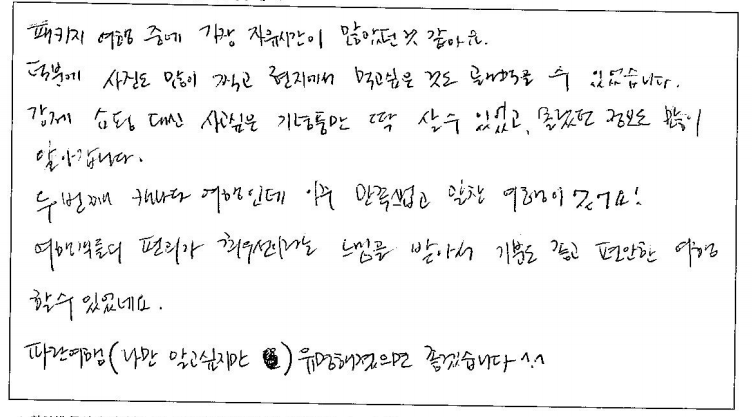 패키지 여행 중에 가장 자유시간이 많았던 것 같아요.
덕분에 사진도 많이 찍고 현지에서 먹고싶은 것도 골라먹을 수 있었습니다.
강제 쇼핑 대신 사고싶은 기념품만 딱 살 수 있었고, 몰랐던 정보도 많이
알아갑니다.
두 번째 캐나다 여행인데 아주 만족스럽고 알찬 여행이었어요!
여행객들의 편의가 최우선이라는 느낌을 받아서 기분도 좋고 편안한 여행
할 수 있었네요.
파란여행(나만 알고싶지만) 유명해졌으면 좋겠습니다^^